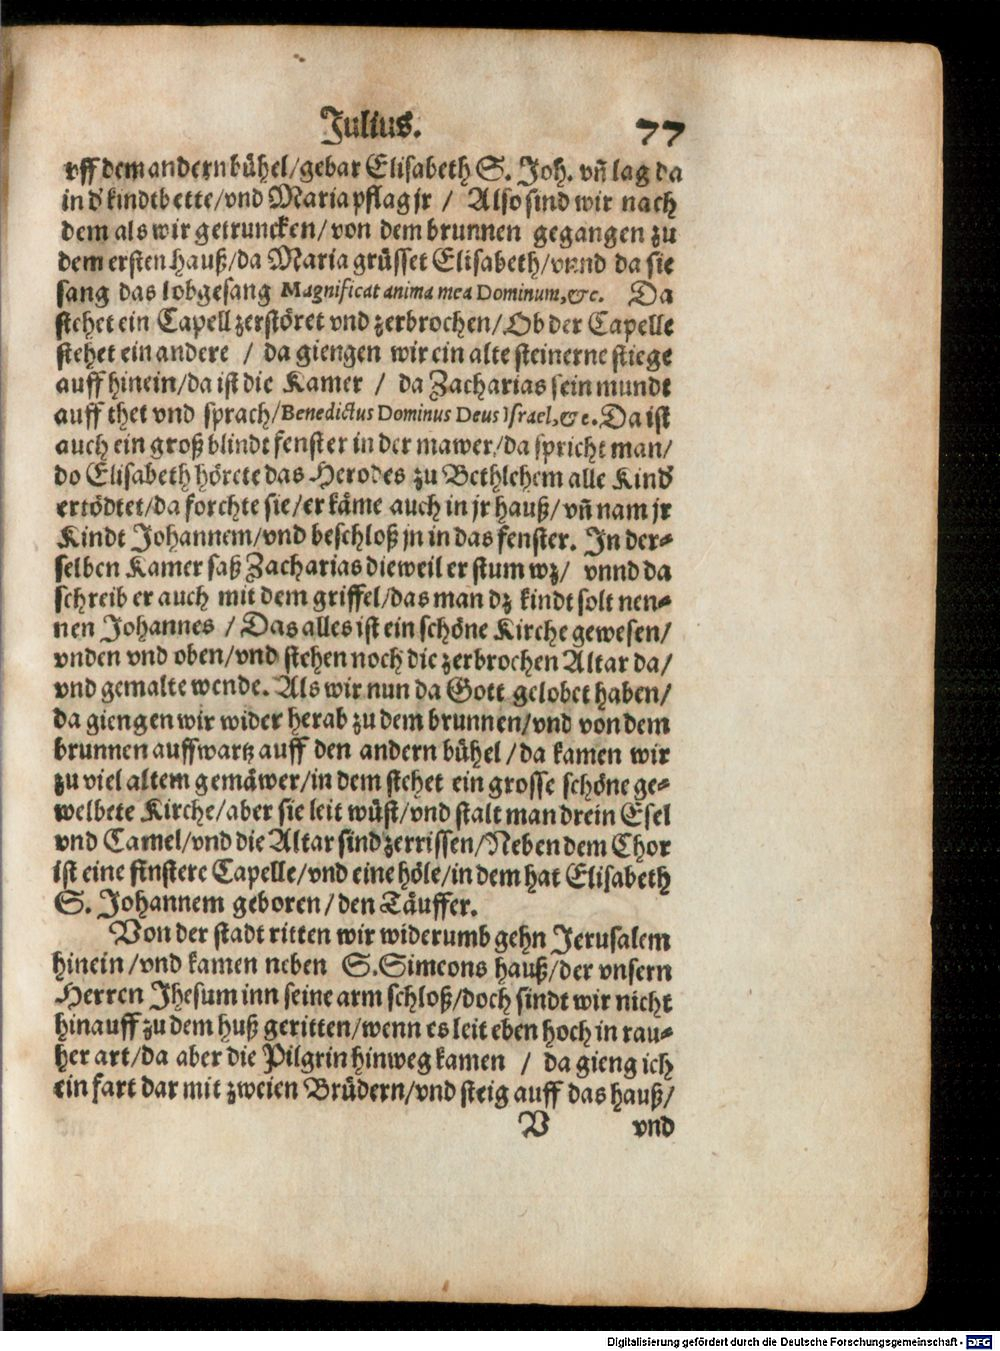 Julius. 77
vff dem andern bühel/gebar Elisabeth S. Joh. vñ lag da
in d' kindtbette/vnd Maria pflag jr / Also sind wir nach
dem als wir getruncken/von dem brunnen gegangen zu
dem ersten hauß/da Maria grüsset Elisabeth/vnnd da sie
sang das lobgesang Magnificat anima mea Dominum,&c. Da
stehet ein Capell zerstöret vnd zerbrochen/Ob der Capelle
stehet ein andere / da giengen wir ein alte steinerne stiege
auff hinein/da ist die Kamer / da Zacharias sein mundt
auff thet vnd sprach/Benedictus Dominus Deus Israel,&c. Da ist
auch ein groß blindt fenster in der mawer/da spricht man/
do Elisabeth hörete das Herodes zu Bethlehem alle Kind'
ertödtet/da forchte sie/er käme auch in jr hauß/vñ nam jr
Kindt Johannem/vnd beschloß jn in das fenster. In der-
selben Kamer saß Zacharias dieweil er stum wz/ vnnd da
schreib er auch mit dem griffel/das man dz kindt solt nen-
nen Johannes / Das alles ist ein schöne Kirche gewesen/
vnden vnd oben/vnd stehen noch die zerbrochen Altar da/
vnd gemalte wende. Als wir nun da Gott gelobet haben/
da giengen wir wider herab zu dem brunnen/vnd von dem
brunnen auffwartz auff den andern bühel/da kamen wir
zu viel altem gemäwer/in dem stehet ein grosse schöne ge-
welbete Kirche/aber sie leit wüst/vnd stalt man drein Esel
vnd Camel/vnd die Altar sind zerrissen/Neben dem Chor
ist eine finstere Capelle/vnd eine höle/in dem hat Elisabeth
S. Johannem geboren/den Täuffer.
Von der stadt ritten wir widerumb gehn Jerusalem
hinein/vnd kamen neben S. Simeons hauß/der vnsern
Herren Jhesum inn seine arm schloß/doch sindt wir nicht
hinauff zu dem huß geritten/wenn es leit eben hoch in rau-
her art/da aber die Pilgrin hinweg kamen / da gieng ich
ein fart dar mit zweien Brüdern/vnd steig auff das hauß/
V vnd
Digitalisierung gefördert durch die Deutsche Forschungsgemeinschaft - DFG